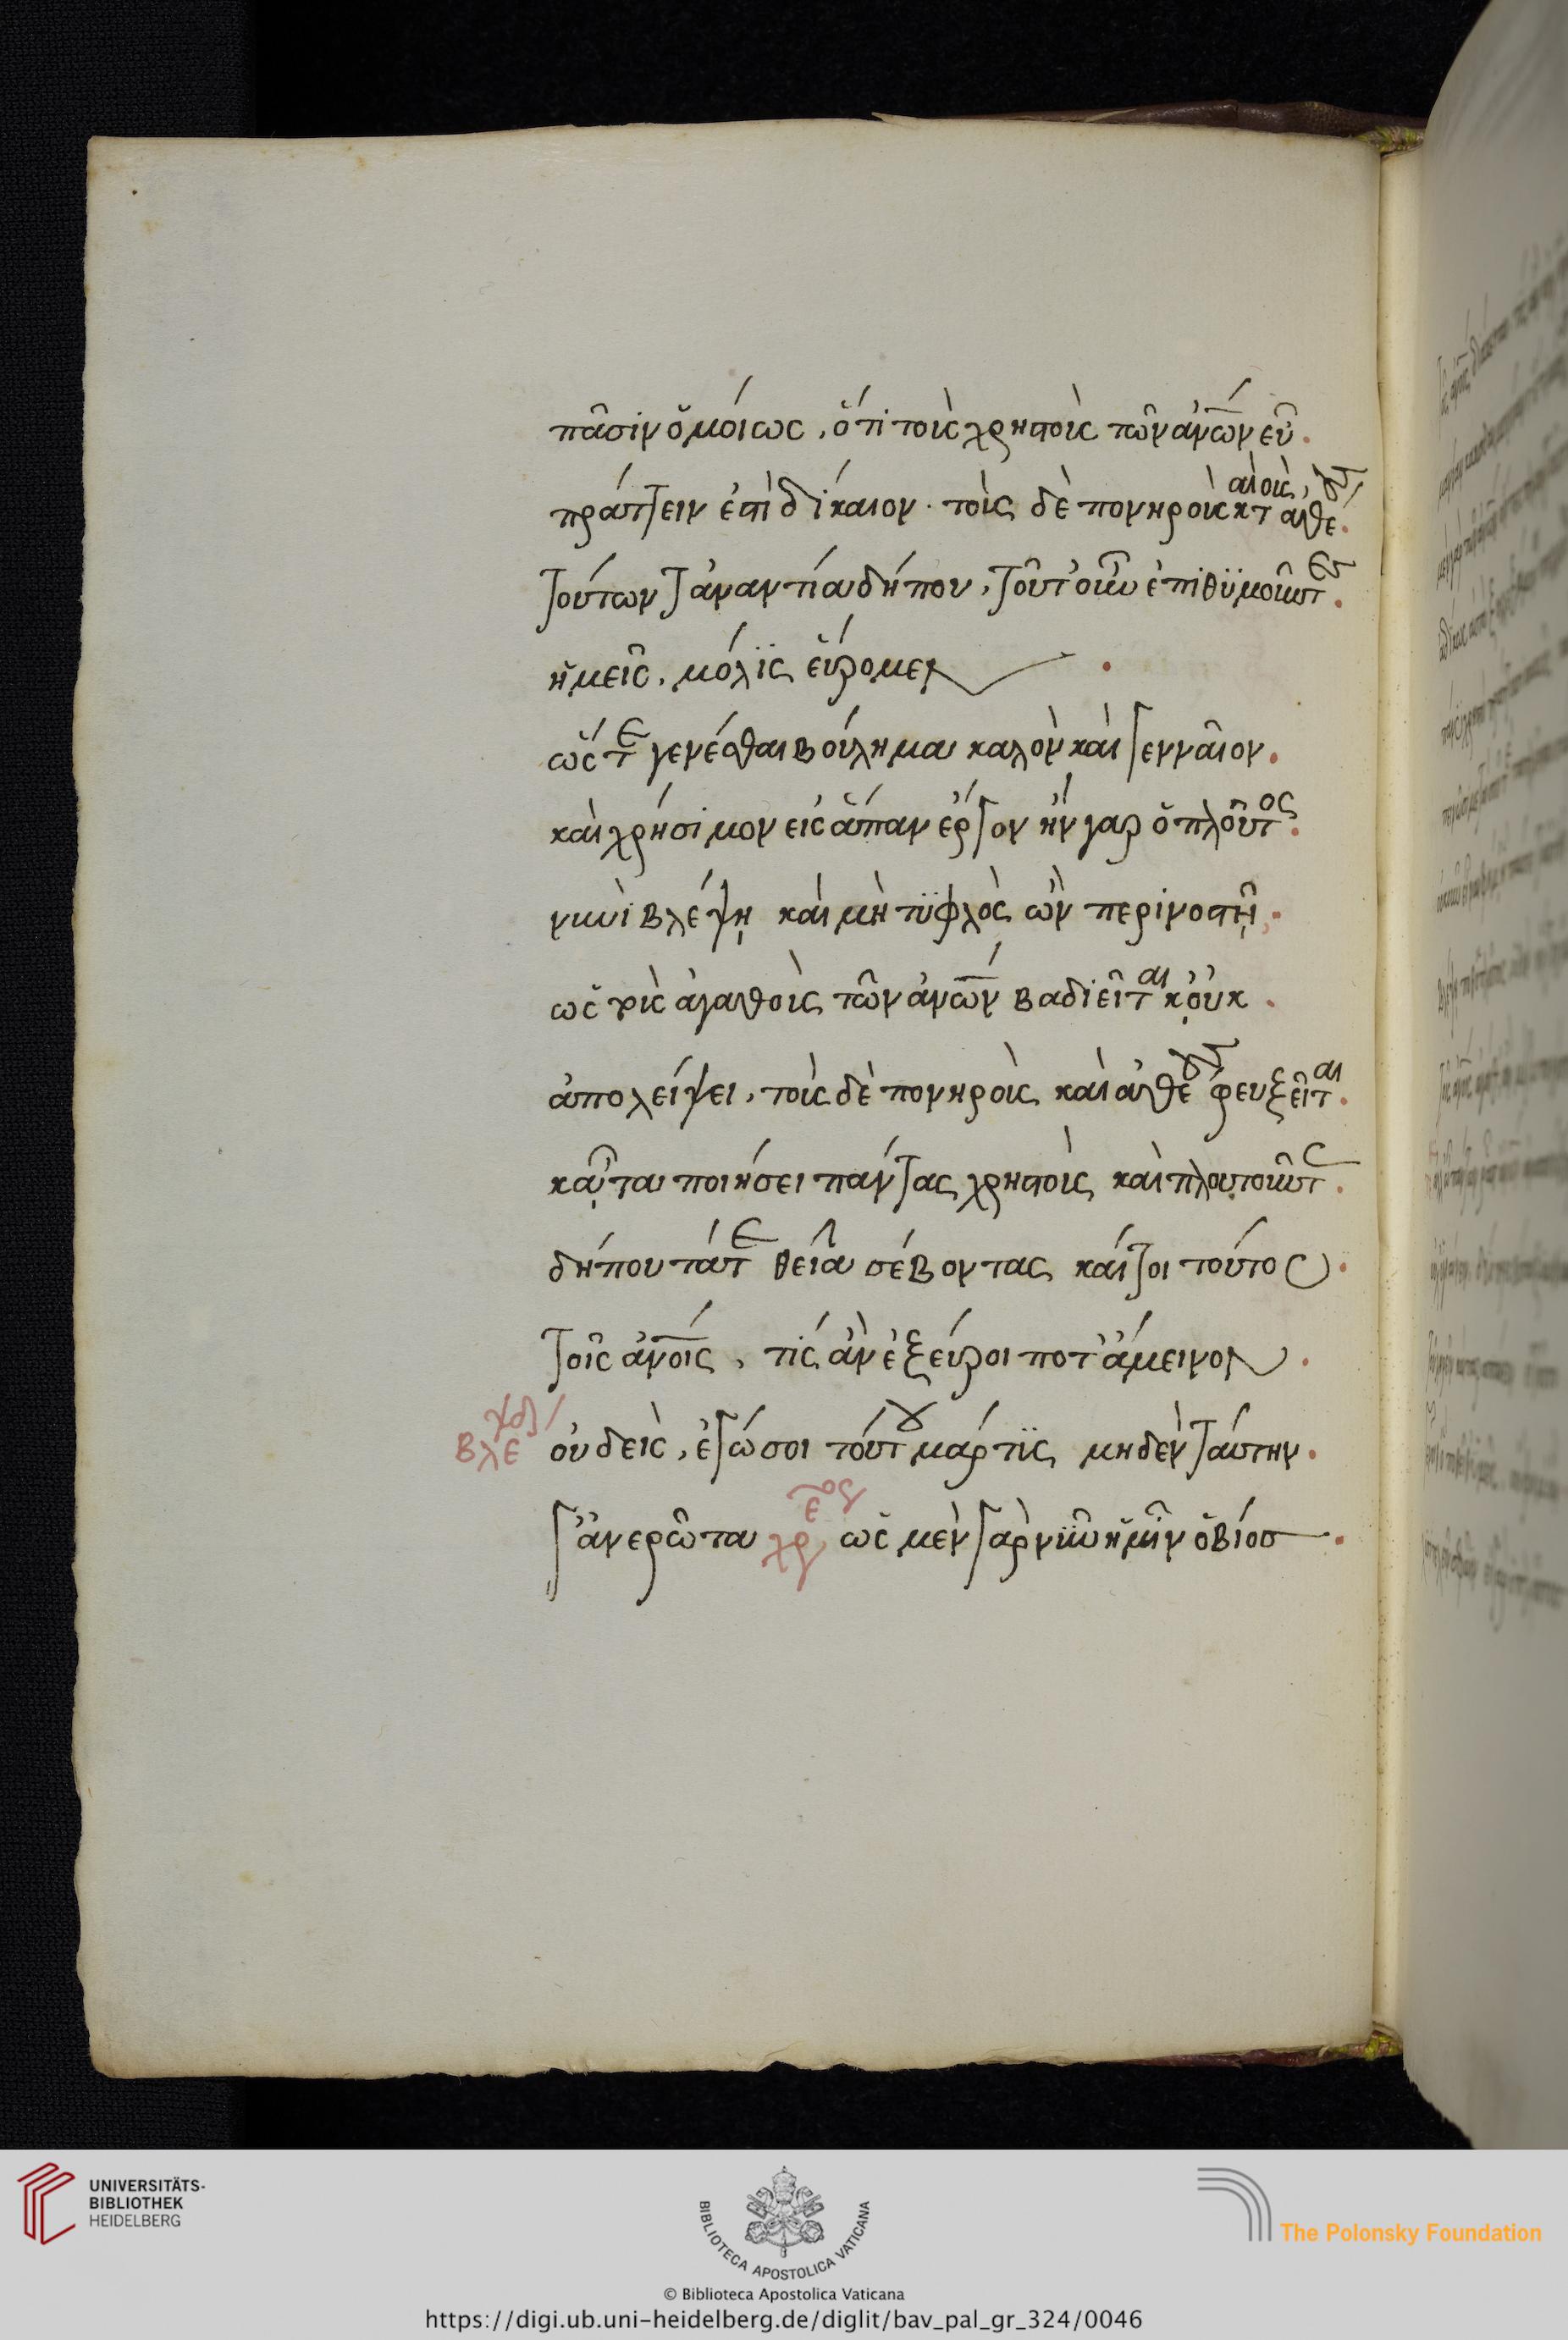 πᾶσιν ὁμοίως, ὅτι τοὺς χρηστοὺς τῶν ἀν̅ων εὖ.
πράττειν ἐστὶ δίκαιον· τοὺς δὲ πονηροὺς καὶ τοὺς ἀθέους.
τούτων τἀναντία δήπου, τοῦτ' οὖν ἐπιθϋμοῦντες.
ἡμεῖς, μόλϊς εὕρομεν.
ὥστε γενέσθαι βούλημα καλὸν καὶ γενναῖον.
καὶ χρήσιμον εἰς ἅπαν ἔργον ἢν γὰρ ὁ πλοῦτος.
νυνὶ βλέψῃ καὶ μὴ τϋφλὸς ὢν περινοστῇ.
ὡς τοὺς ἀγαθοὺς τῶν ἀν̅ων βαδιεῖται κοὐκ.
ἀπολείψει, τοὺς δὲ πονηροὺς καὶ ἀθέους φευξεῖται.
κᾆτα ποιήσει πάντας χρηστοὺς καὶ πλουτοῦντας.
δήπου τά τε θεῖα σέβοντας καίτοι τούτου.
τοῖς ἀν̅οις, τίς ἂν ἐξεύροι ποτ' ἄμεινον.
βλε οὐδεὶς, ἐγώ σοι τούτου μάρτϋς μηδὲν ταύτην.
γ' ἀνερώτα χρε ὡς μὲν γὰρ νῦν ἡμῖν ὁ βίος.
UNIVERSITÄTS-
BIBLIOTHEK
HEIDELBERG
BIBLIOTECA APOSTOLICA VATICANA
The Polonsky Foundation
© Biblioteca Apostolica Vaticana
https://digi.ub.uni-heidelberg.de/diglit/bav_pal_gr_324/0046